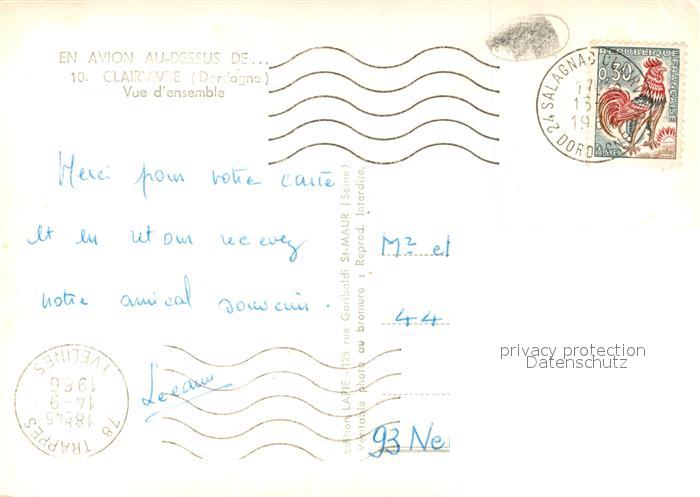 EN AVION AU-DESSUS DE...
10. CLAIRVIVRE (Dordogne)
Vue d'ensemble
RÉPUBLIQUE
FRANÇAISE
0,30
POSTES
24 SALAGNAC
17
13-
19
DORDOGNE
Merci pour votre carte
et en retour recevez
notre amical souvenir.
Edition LAPIE - 125 rue Garibaldi St-MAUR (Seine)
Véritable photo au bromure : Reprod. Interdite.
Mr et
44
93 Ne
privacy protection
Datenschutz
78 TRAPPES
18H45
14-9
1966
YVELINES